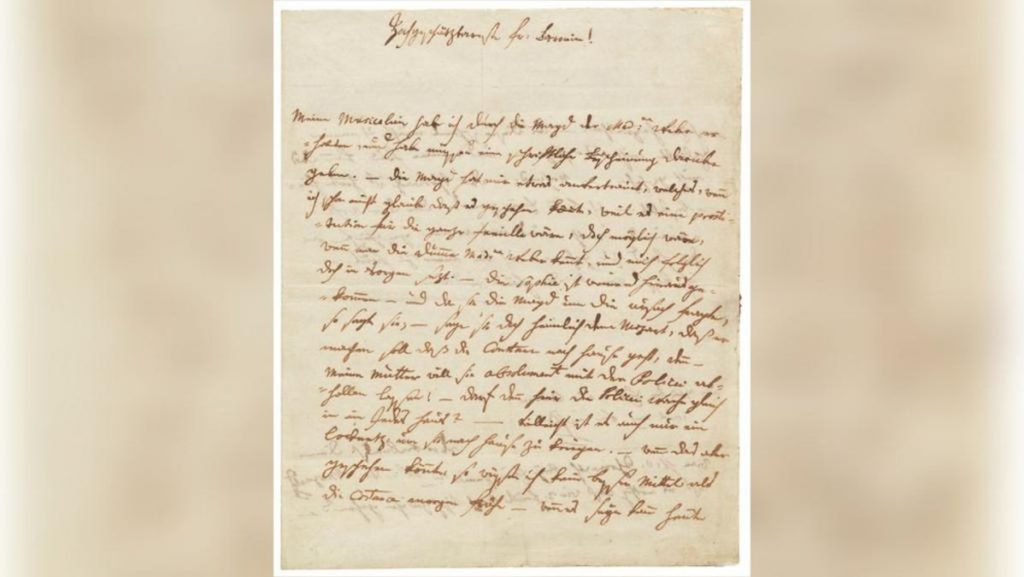 Hochgeschätzteste Fr: Baronin!
Meine Musicalien hab ich durch die Magd der Mad:me Weber er-
-halten, und habe müssen eine schriftliche Bescheinung darüber
geben. — die Magd hat mir etwas anvertrauet, welches, wenn
ich schon nicht glaube daß es geschehen könnte, weil es eine prosti-
-tution für die ganze familie wäre, doch möglich wäre,
wenn man die dumme Mad:me Weber kennt, und mich folglich
doch in Sorgen setzt. — die Sophie ist weinend hinausge-
-kommen — und da sie die Magd um die ursach fragte,
so sagte sie; — sage sie doch heimlich dem Mozart, daß er
machen soll daß die Constanz nach hause geht, denn —
Meine Mutter will sie absolument mit der Polizei ab-
-hollen lassen! — darf denn hier die Polizei wache gleich
in ein Jedes haus? — Vielleicht ist es auch nur ein
locknetz um sie nach hause zu kriegen. — wenn das aber
geschehen könnte, so wüsste ich kein besser Mittel als
die Constanze morgen frühe — wenns seyn kann heute